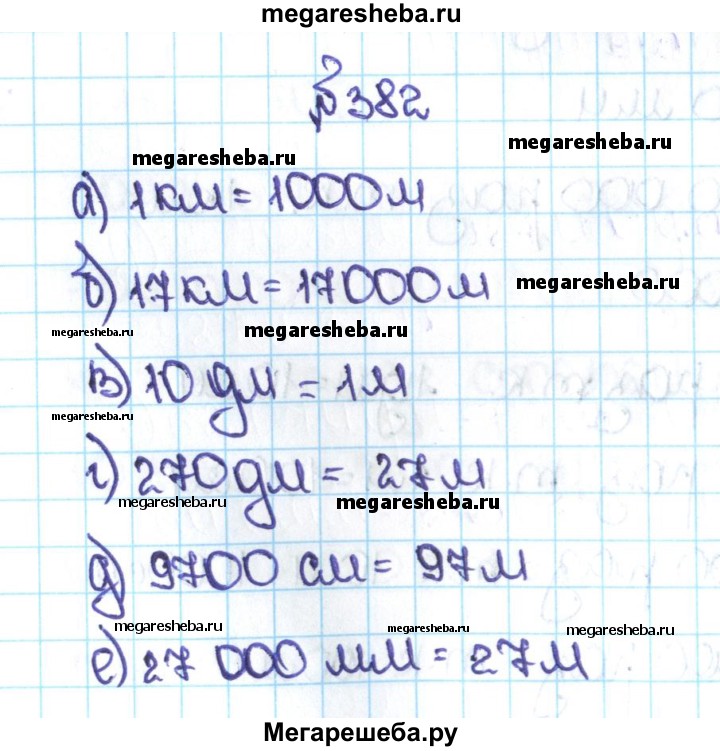 megaresheba.ru
№382
megaresheba.ru
а) 1км = 1000м
б) 17км = 17000м
megaresheba.ru
megaresheba.ru
megaresheba.ru
в) 10 дм = 1м
megaresheba.ru
г) 270дм = 27м
megaresheba.ru
megaresheba.ru
д) 9700 см = 97м
megaresheba.ru
megaresheba.ru
megaresheba.ru
е) 27 000 мм = 27м
Мегарешеба.ру